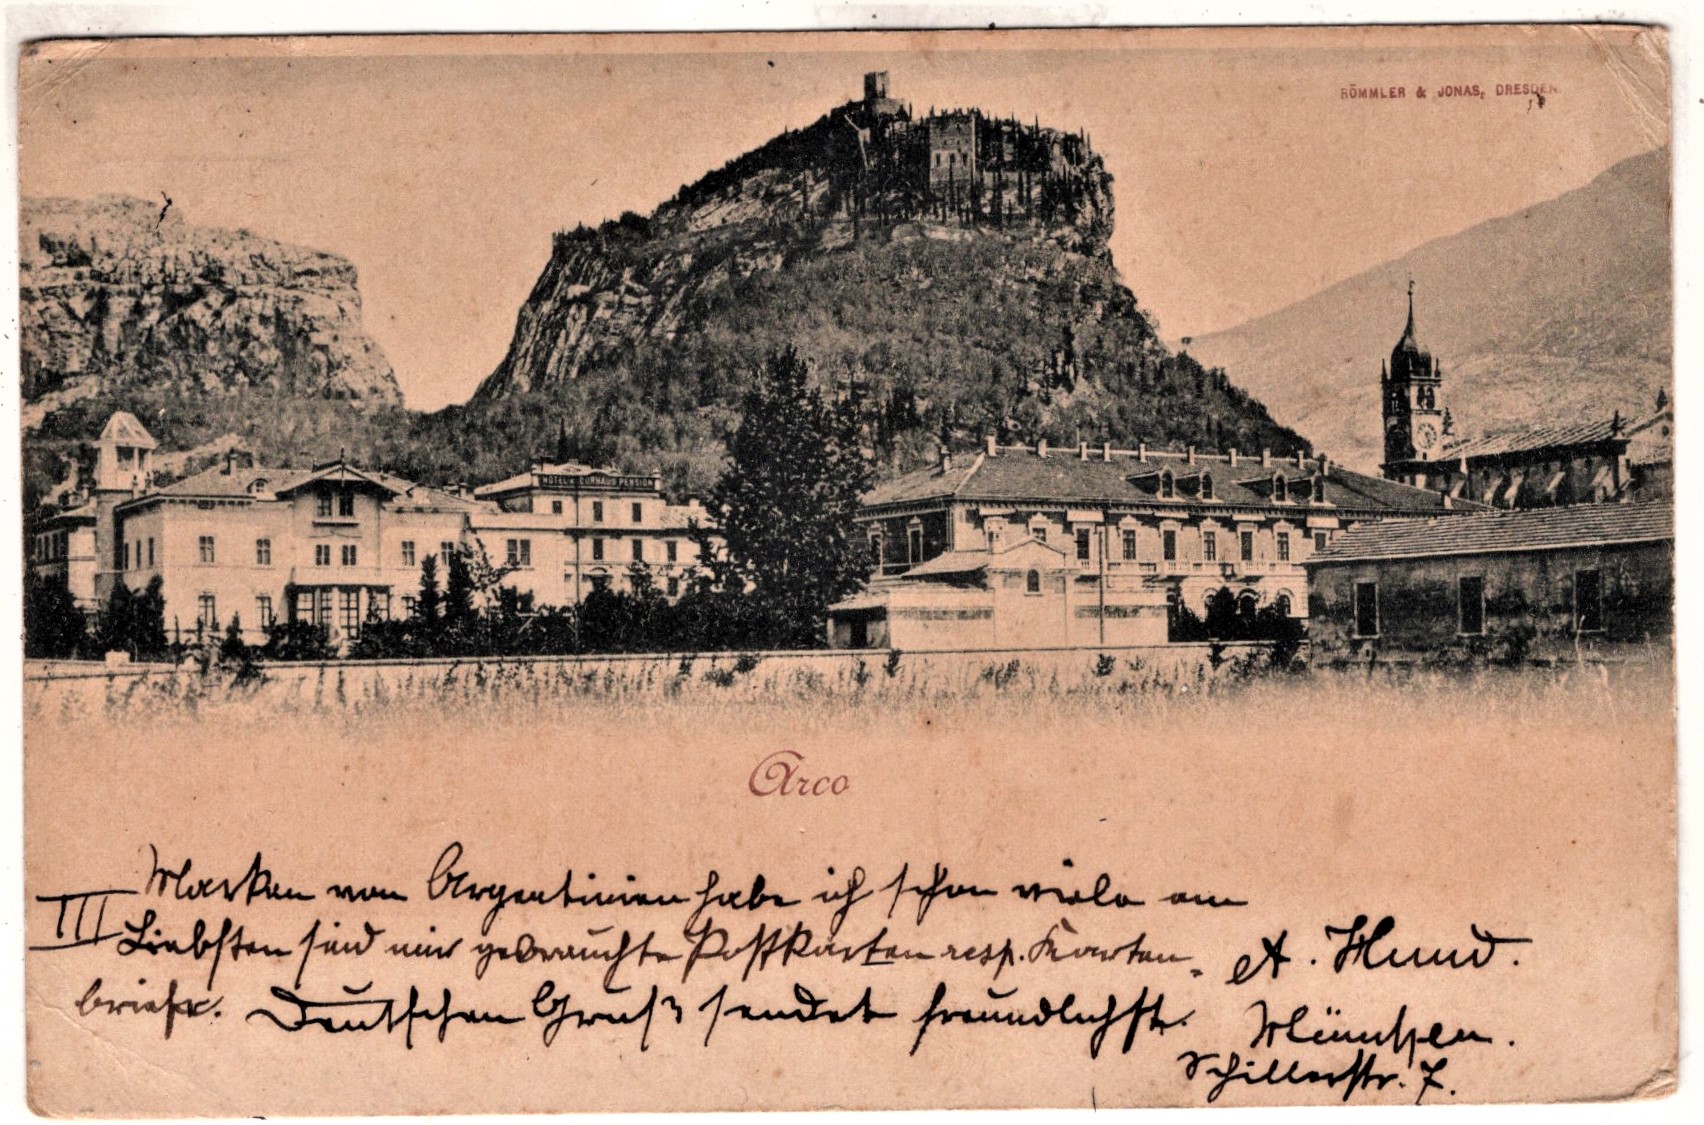 RÖMMLER & JONAS, DRESDEN.
HOTEL CURHAUS PENSION
Arco
III
Marken von Argentinien habe ich schon viele am
Liebsten sind mir gebrauchte Postkarten resp. Karten-
briefe. Deutschen Gruß sendet freundlichst.
A. Hund.
München.
Schillerstr. 7.